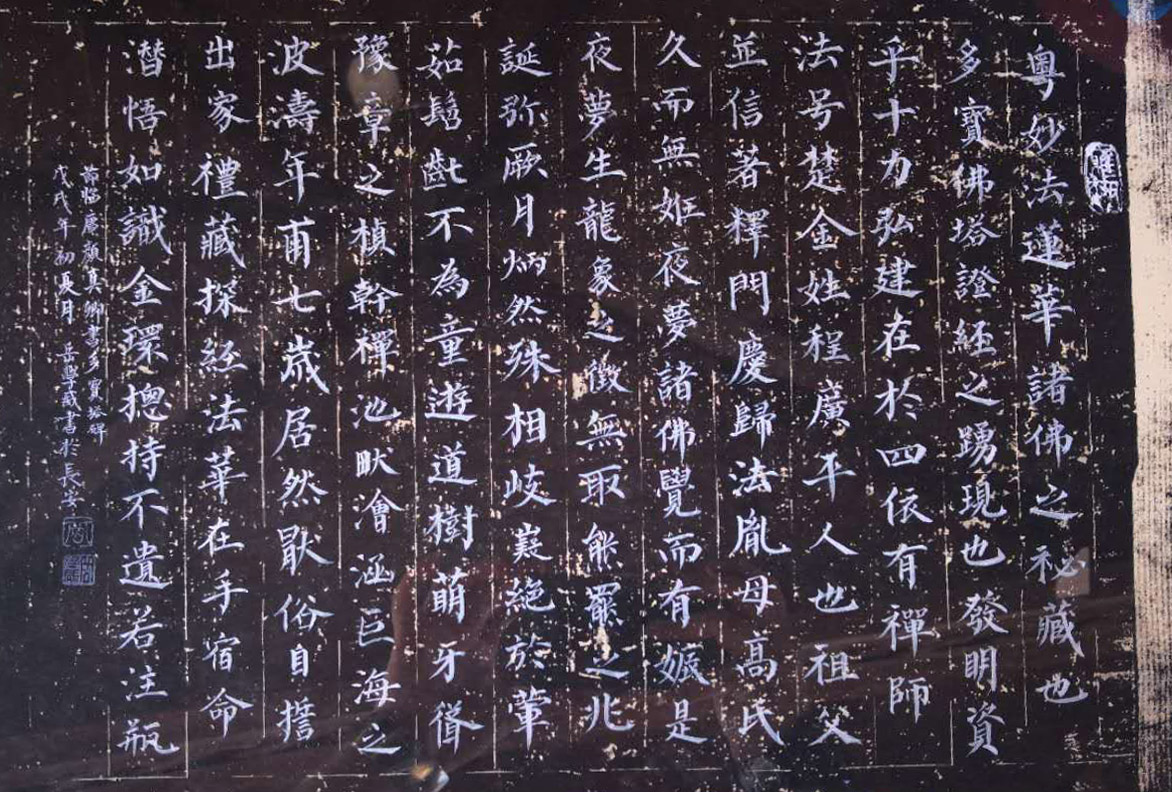 粤妙法蓮華諸佛之祕藏也
多寶佛塔證經之踴現也發明資
乎十力弘建在於四依有禪師
法号楚金姓程廣平人也祖父
並信著釋門慶歸法胤母高氏
久而無姬夜夢諸佛覺而有娠是
夜夢生龍象之徵無取熊羆之兆
誕弥厥月炳然殊相岐嶷絕於葷
茹髫齔不為童遊道樹萌牙聳
豫章之楨幹禪池畎澮涵巨海之
波濤年甫七歲居然猒俗自誓
出家禮藏探經法華在手宿命
潛悟如識金環揔持不遺若注瓶
節臨唐顏真卿書多寶塔碑
戊戌年初夏月岳擎戚書於長安